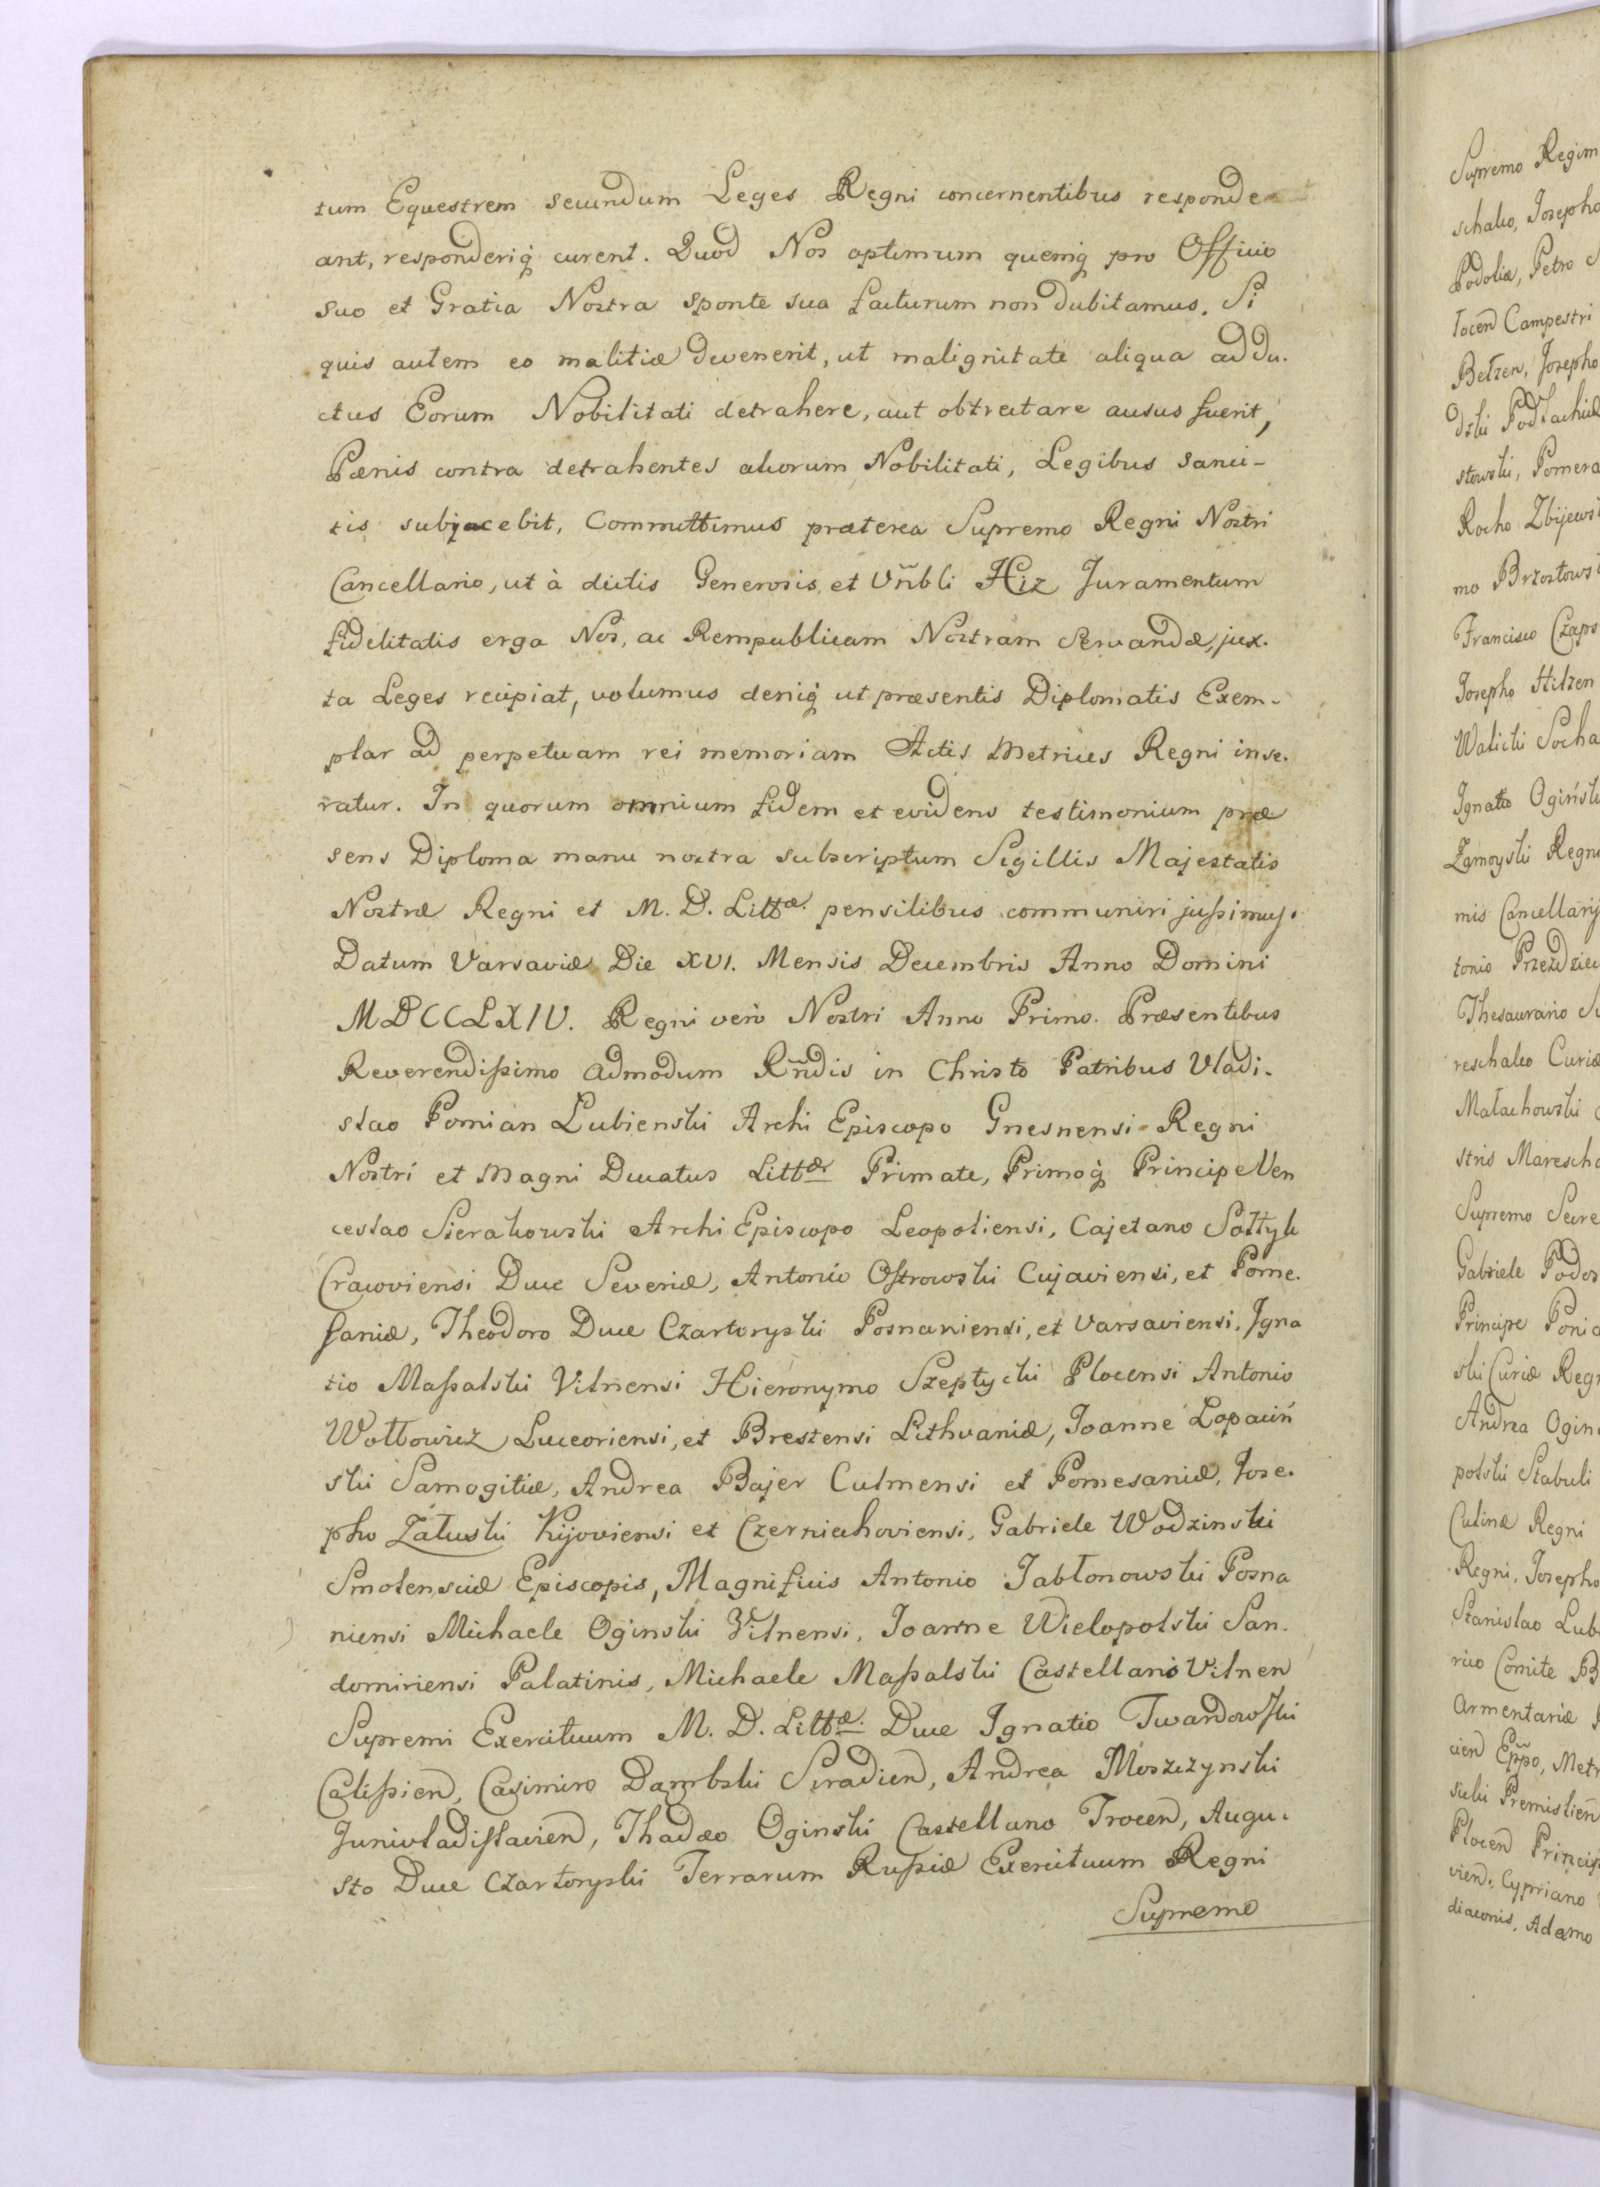 tum Equestrem secundum Leges Regni concernentibus responde
ant, responderiq́ curent. Quod Nos optimum quemq́ pro Officio
suo et Gratia Nostra sponte sua facturum non dubitamus. Si
quis autem eo malitiæ devenerit, ut malignitate aliqua addu-
ctus Eorum Nobilitati detrahere, aut obtrectare ausus fuerit,
Pænis contra detrahentes aliorum Nobilitati, Legibus sanci-
tis subjacebit, Committimus præterea Supremo Regni Nostri
Cancellario, ut à dictis Generosis et Vñbli Hiz Juramentum
fidelitatis erga Nos, ac Rempublicam Nostram servandæ, jux-
ta Leges recipiat, volumus deniq́ ut præsentis Diplomatis Exem-
plar ad perpetuam rei memoriam Actis Metrices Regni inse-
ratur. In quorum omnium fidem et evidens testimonium præ
sens Diploma manu nostra subscriptum Sigillis Majestatis
Nostræ Regni et M. D. Littæ. pensilibus communiri jussimus.
Datum Varsaviæ Die XVI. Mensis Decembris Anno Domini
MDCCLXIV. Regni verò Nostri Anno Primo. Præsentibus
Reverendissimo admodum Rñdis in Christo Patribus Vladi-
slao Pomian Lubienski Archi Episcopo Gnesnensi Regni
Nostri et Magni Ducatus Littæ Primate, Primoq́ Principe Ven
ceslao Sierakowski Archi Episcopo Leopoliensi, Cajetano Sołtyk
Cracoviensi Duce Severiæ, Antonio Ostrowski Cujaviensi, et Pome-
saniæ, Theodoro Duce Czartoryski Posnaniensi, et Varsaviensi, Igna
tio Massalski Vilnensi Hieronymo Szeptycki Plocensi Antonio
Wołłowicz Luceoriensi, et Brestensi Lithvaniæ, Joanne Łopaciń
ski Samogitiæ, Andrea Bajer Culmensi et Pomesaniæ, Jose-
pho Załuski Kijoviensi et Czerniechoviensi, Gabriele Wodzinski
Smolensciæ Episcopis, Magnificis Antonio Jabłonowski Posna
niensi Michaele Oginski Vilnensi, Joanne Wielopolski San-
domiriensi Palatinis, Michaele Massalski Castellano Vilnen
Supremi Exercituum M. D. Littæ. Duce Ignatio Twardowski
Calissien, Casimiro Dambski Siradien, Andrea Moszczynski
Junivladislavien, Thadæo Oginski Castellano Trocen, Augu-
sto Duce Czartoryski Terrarum Russiæ Exercituum Regni
Supremo
Supremo Regim
schalco, Josepho
Podoliæ, Petro
Campestri
Betzen, Josepho
Podlachiæ
Pomera
Rocho Zbijews
mo Brzostows
Francisco Czaps
Josepho Hilzen
Walicki Socha
Ignatio Ogińsk
Zamoyski Regni
mis Cancellarij
tonio Przezdziec
Thesaurario
reschalco Curiæ
Małachowski
stris Marescha
Supremo Secre
Gabriele Podos
Principe Ponia
ski Curiæ Regn
Andrea Ogin
polski Stabuli
Culinæ Regni
Regni, Josepho
Stanislao Lub
rico Comite B
Armentariæ
cien Eppo, Metr
Premislien
Plocen Princip
vien, Cypriano
diaconis, Adamo